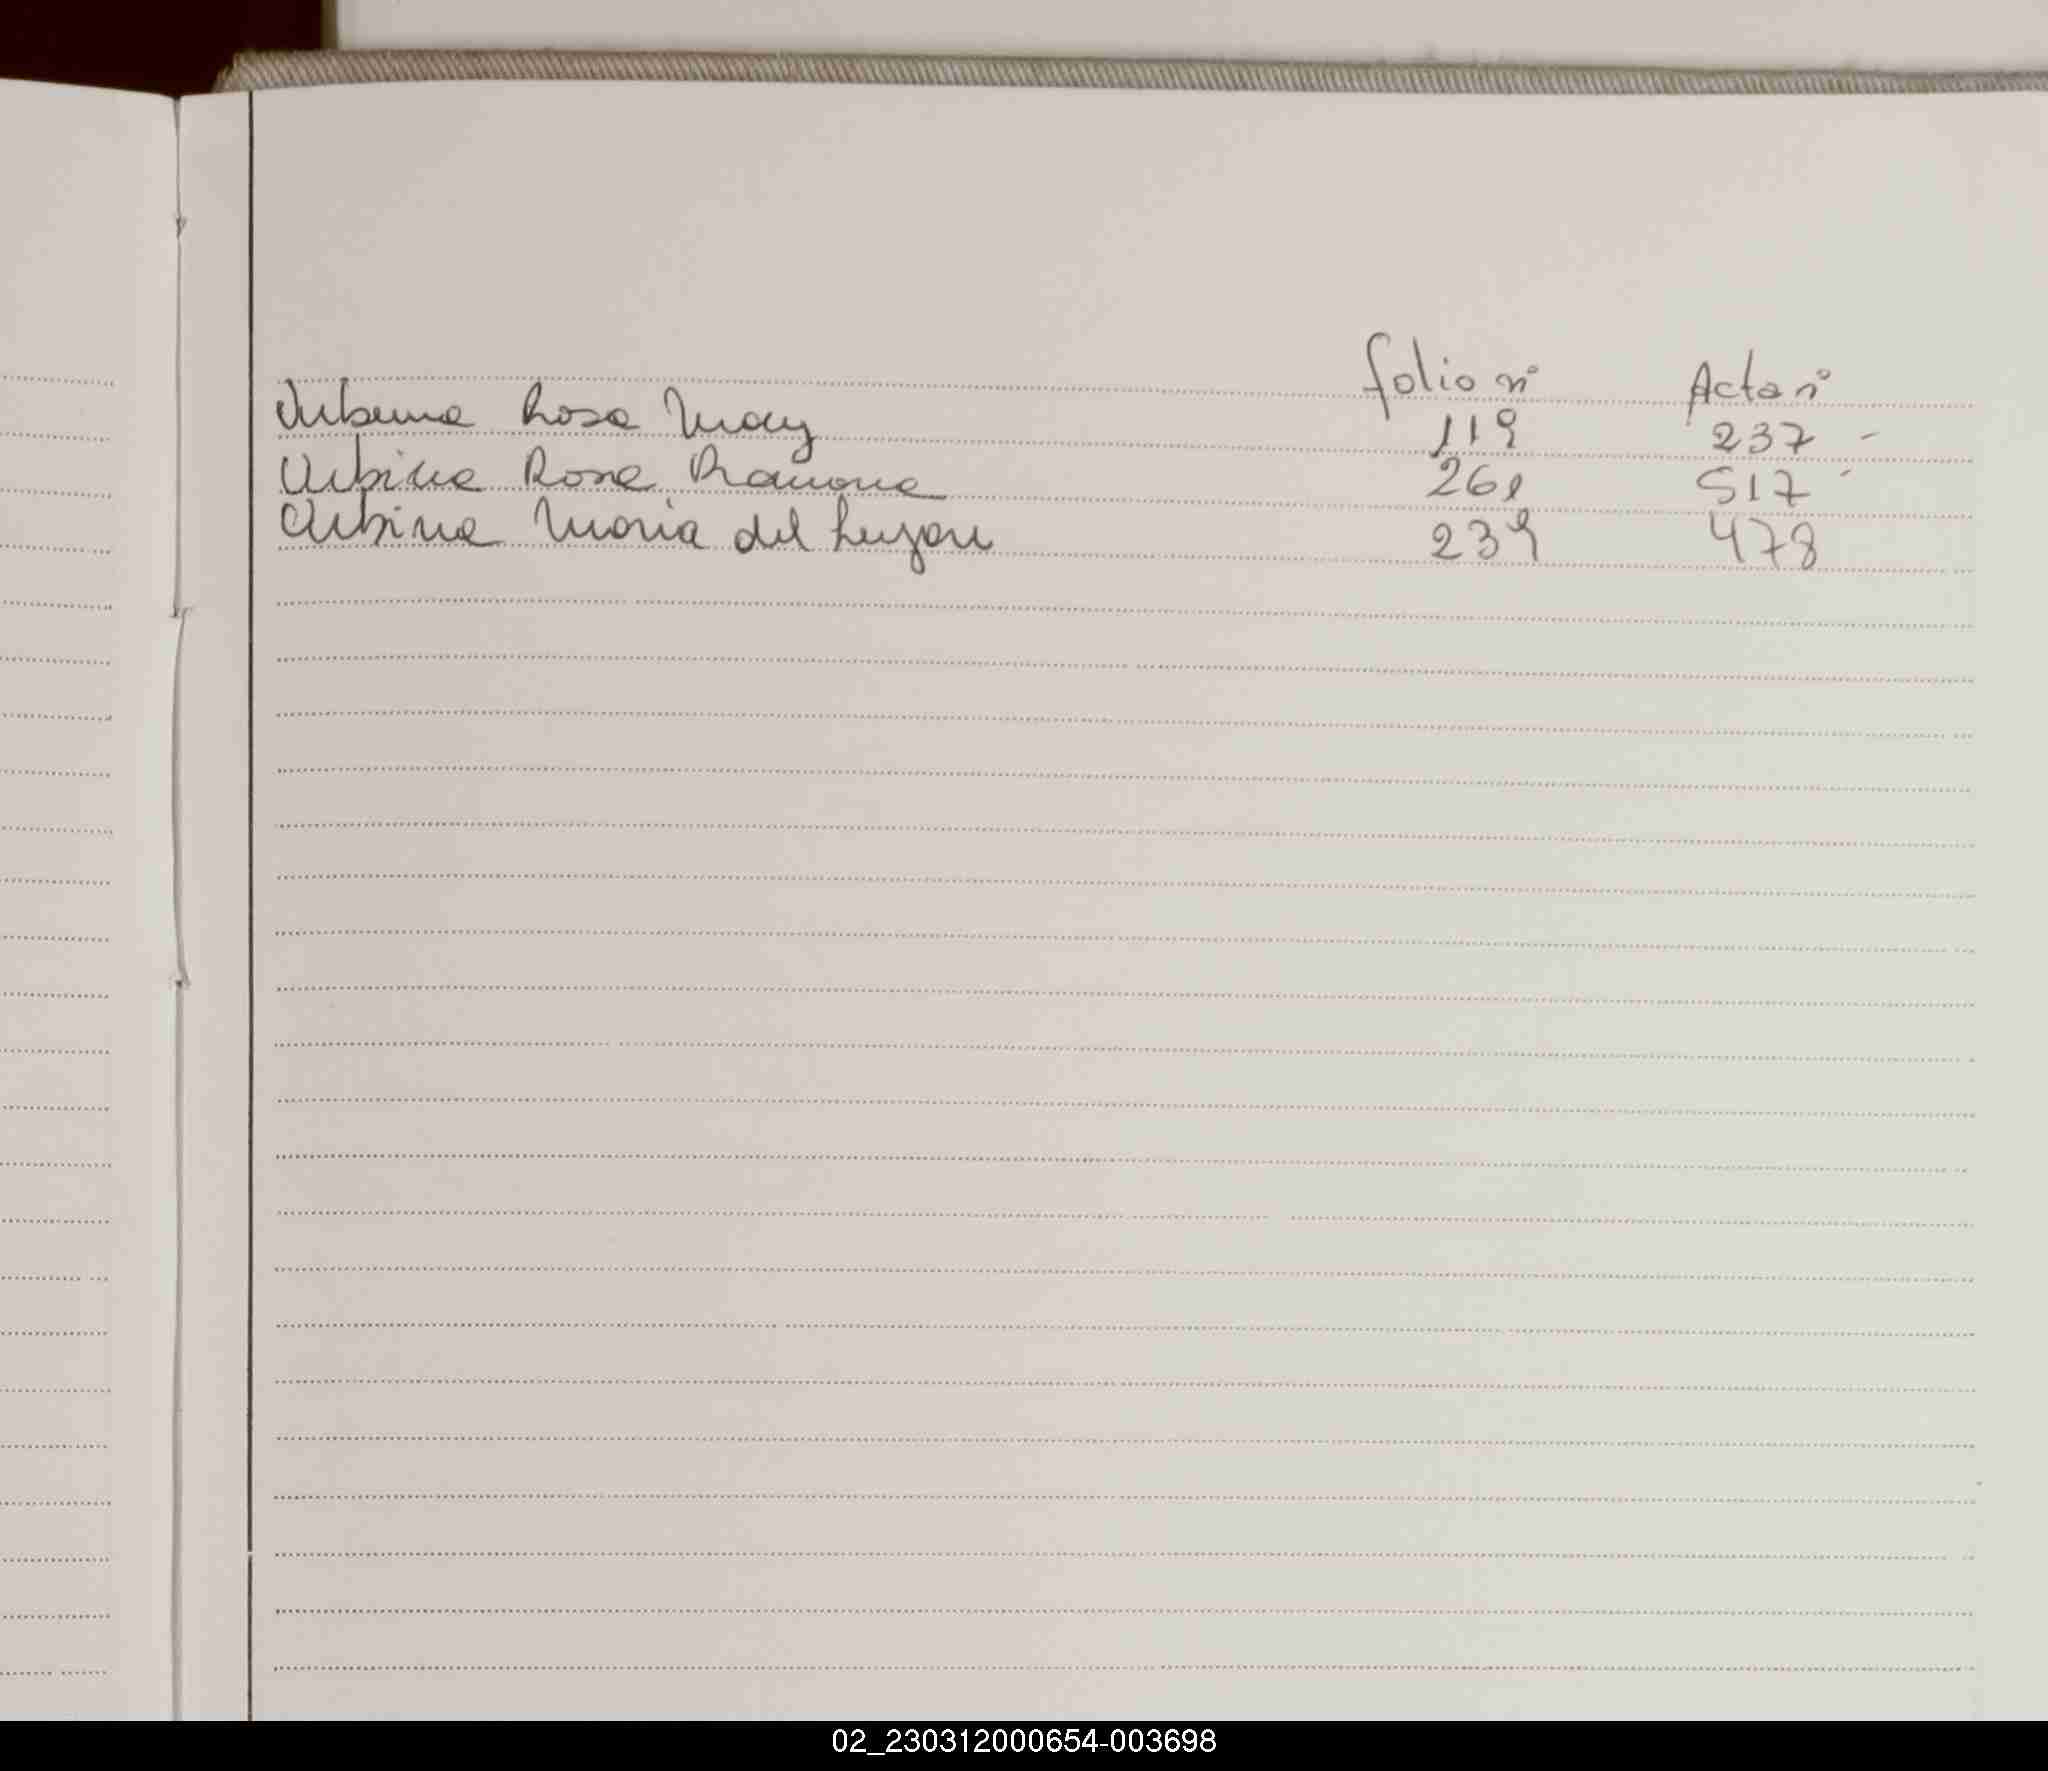 folio nº Acta nº
Urbina Rosa Mary 119 237 -
Urbina Rosa Ramona 261 517 -
Urbina Maria del Lujan 239 478
02_230312000654-003698